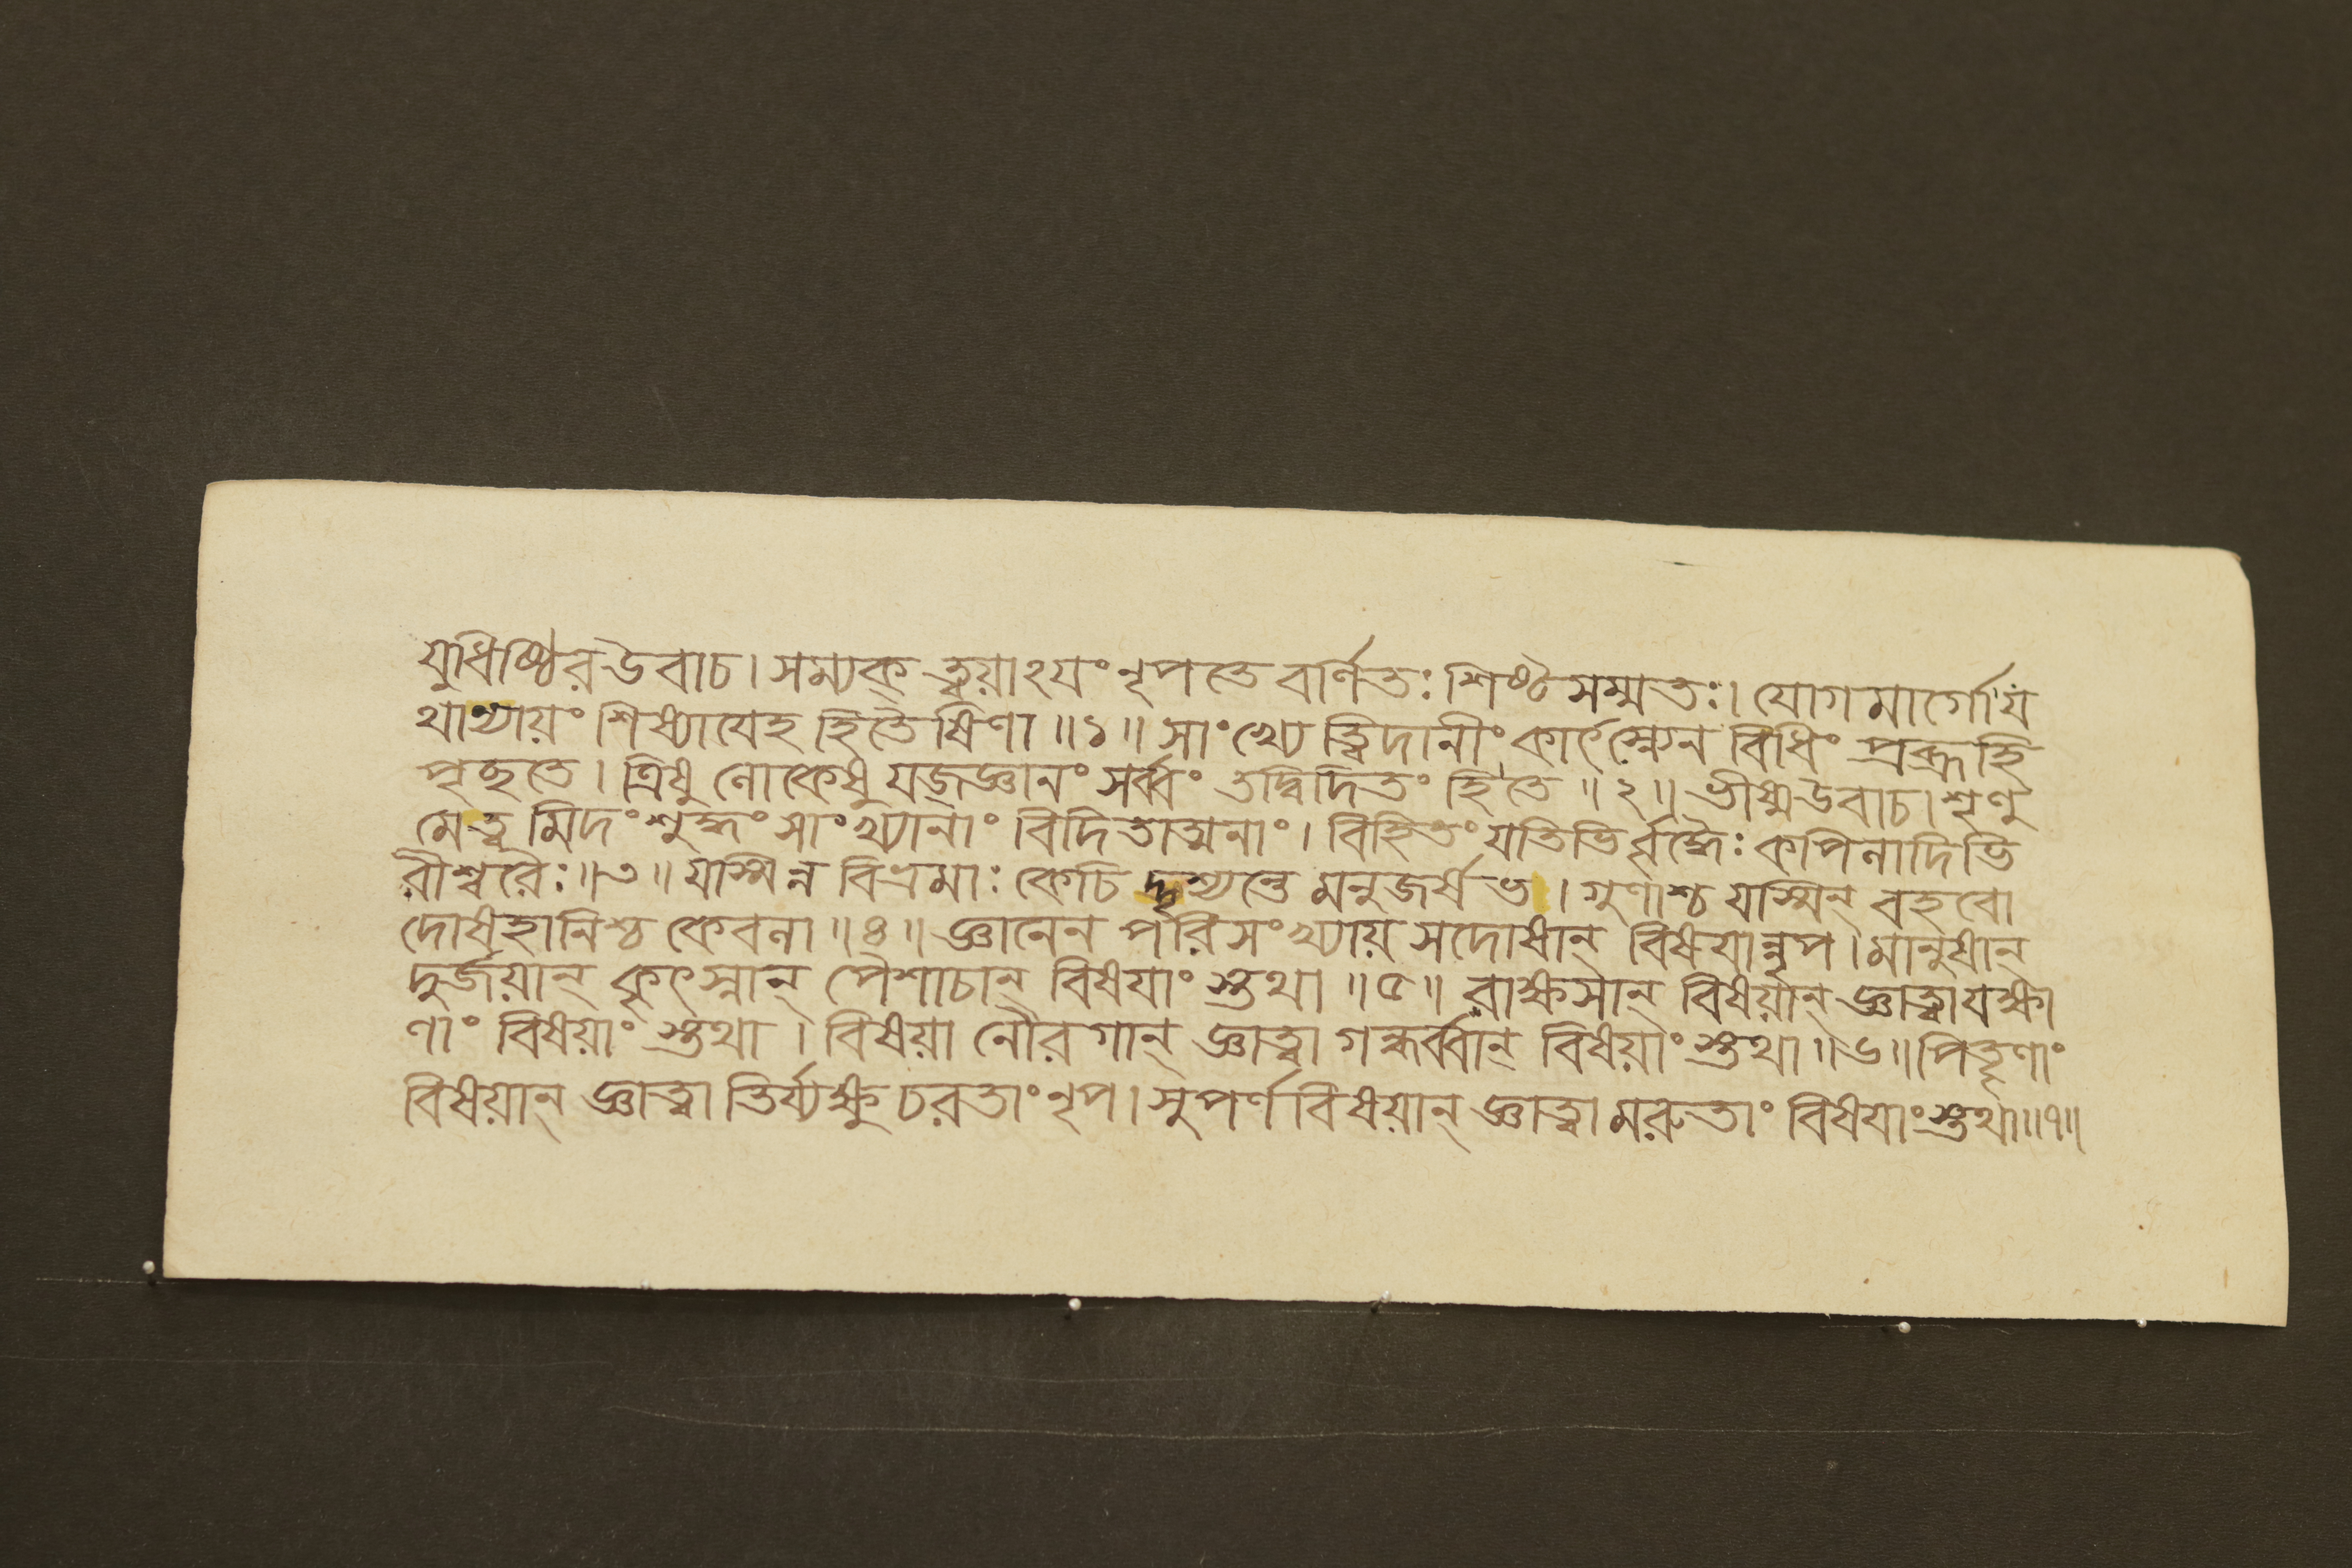 যুধিষ্ঠির উবাচ। সম্যক্ ত্বয়াঽযং নৃপতে বর্ণিতঃ শিষ্টসম্মতঃ। যোগমার্গোযং
থান্যায়ং শিষ্যাযেহ হিতৈষিণা॥১॥ সাংখ্যে ত্বিদানীং কার্ৎস্নেন বিধিং প্রব্রূহি
পৃচ্ছতে। ত্রিষু লোকেষু যজ্জ্ঞানং সর্ব্বং তদ্বিদিতং হি তে॥২॥ ভীষ্মউবাচ। শৃণু
মেত্বমিদং শুদ্ধং সাংখ্যানাং বিদিতাত্মনাং। বিহিতং যতিভির্ব্বৃদ্ধৈঃ কপিলাদিভি
রীশ্বরৈঃ॥৩॥ যস্মিন্ন বিভ্রমাঃ কেচিদ্দৃশ্যন্তে মনুজর্ষভ। গুণাশ্চ যস্মিন্ বহবো
দোষহানিশ্চ কেবলা॥৪॥ জ্ঞানেন পরিসংখ্যায় সদোষান্ বিষয়ান্নৃপ। মানুষান্
দুর্জয়ান্ কৃৎস্নান্ পৈশাচান্ বিষযাংস্তথা॥৫॥ রাক্ষসান্ বিষয়ান্ জ্ঞাত্বা যক্ষা
ণাং বিষয়াংস্তথা। বিষয়ানৌরগান্ জ্ঞাত্বা গন্ধর্ব্বান্ বিষয়াংস্তথা॥৬॥ পিতৄণাং
বিষয়ান্ জ্ঞাত্বা তির্য্যক্ষু চরতাং নৃপ। সুপর্ণবিষয়ান্ জ্ঞাত্বা মরুতাং বিষযাংস্তথা॥৭॥